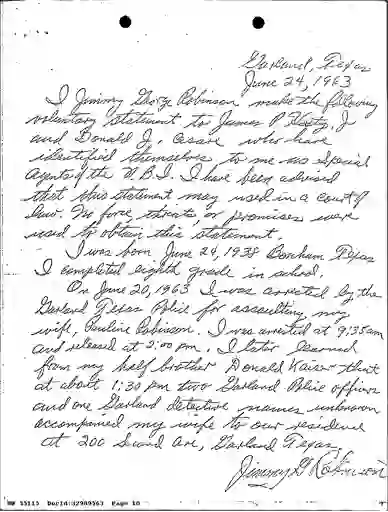 Garland, Texas
June 24, 1963
I Jimmy George Robinson make the following
voluntary statement to James P. Hosty, Jr
and Donald J. who have
identified themselves to me as Special
Agents of the F.B.I. I have been advised
that this statement may used in a court of
law. No force, threats, or promises were
used to obtain this statement.
I was born June 24, 1938 Bonham Texas
I completed eighth grade in school.
On June 20, 1963 I was arrested by the
Garland Texas Police for assaulting my
wife, Pauline Robinson. I was arrested at 9:35am
and released at 2:00 pm. I later learned
from my half brother Donald Kaiser that
at about 1:30 pm two Garland Police officers
and one Garland detective names unknown
accompanied my wife to our residence
at 200 Ave, Garland Texas
Jimmy G Robinson
55115 DocId:32989563 Page 10